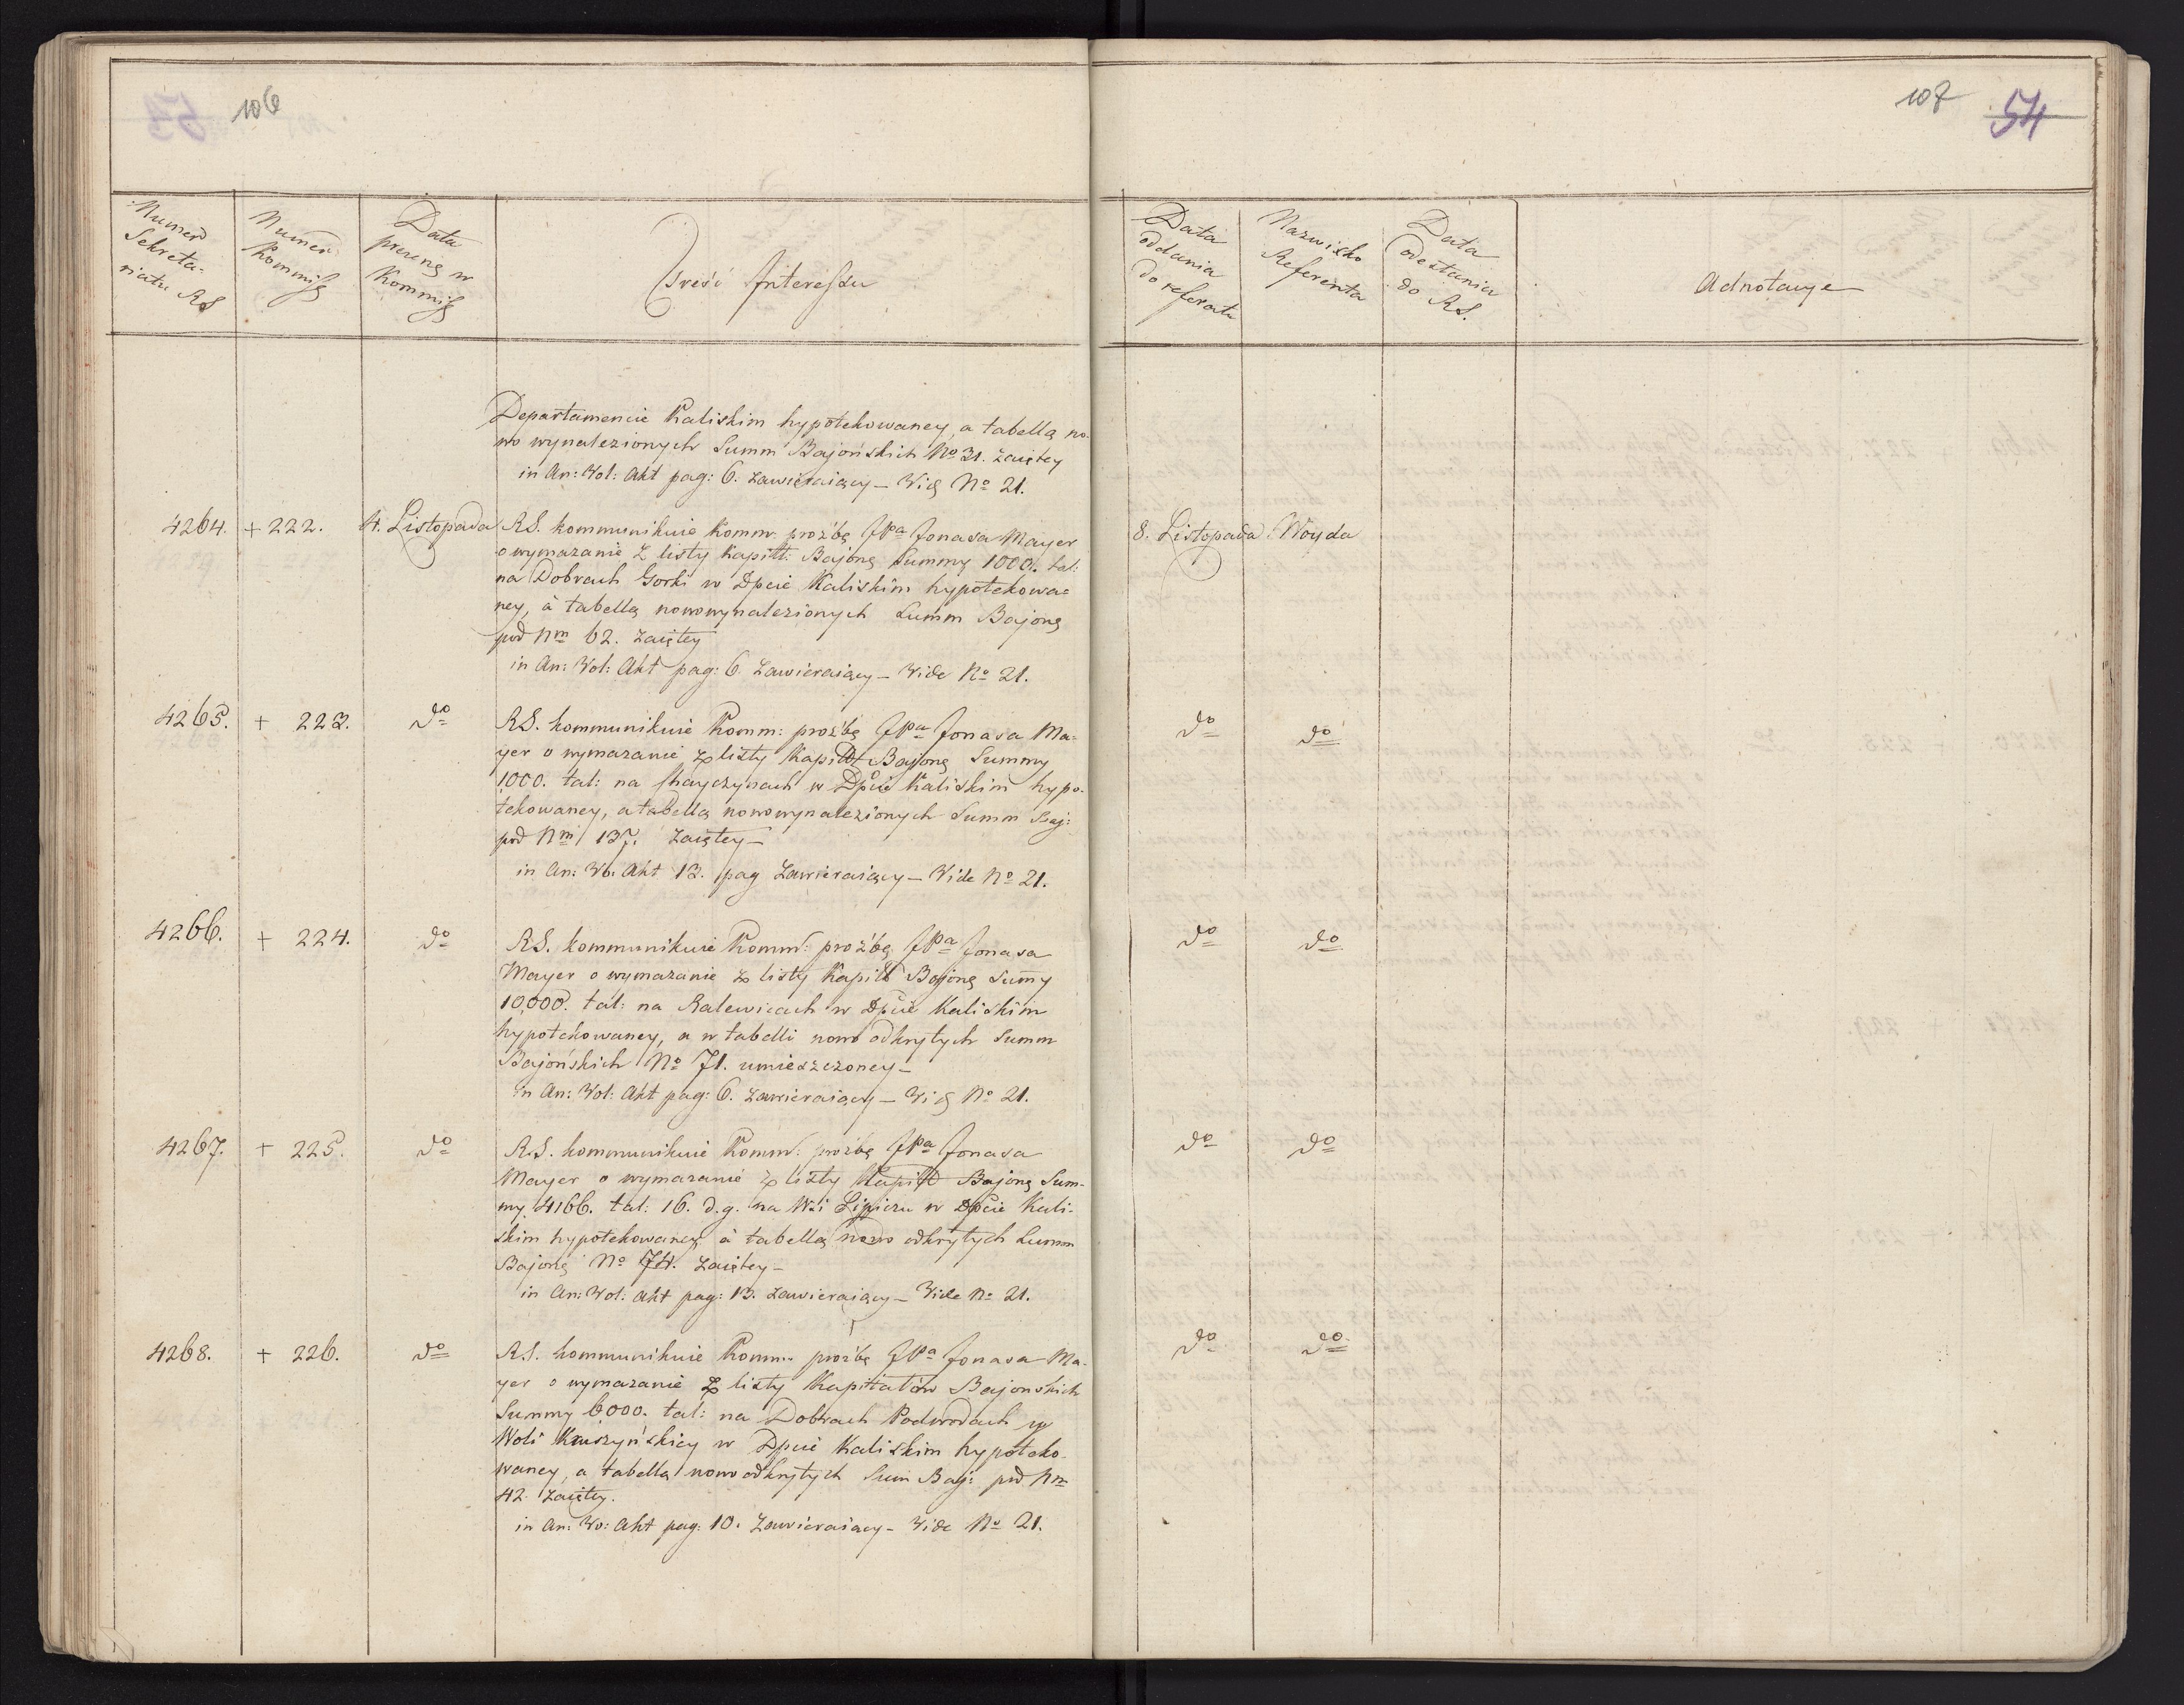 106
107 54
Numer Sekretariatu RS
Numer Kommiss
Data prezens w Kommiss
Treść Interessu
Data oddania do referatu
Nazwisko Referenta
Data odesłania do RS.
Adnotacye
Departamencie Kaliskim hypotekowaney, a tabellą no-
wo wynalezionych Summ Bajońskich No 31. zaiętey
in An: Vol: Akt pag: 6. zawieraiący – Vid No 21.
4264. + 222. 4. Listopada RS. kommunikuie Komm: prożbę JPa Jonasa Mayer 8. Listopada Woyda
o wymazanie z listy Kapitt: Bajong Summy 1000. tal:
na Dobrach Gorki w Dpcie Kaliskim hypotekowa=
ney, a tabellą nowowynalezionych Summ Bajong
pod Nm 62. zaiętey
in An: Vol: Akt pag: 6. zawieraiący – Vide No 21.
4265. + 223. do RS. kommunikuie Komm: prożbę JPa Jonasa Ma= do do
yer o wymazanie z listy Kapitt Bajong Summy
1000. tal: na w Dpcie Kaliskim hypo-
tekowaney, a tabellą nowowynalezionych Summ Baj:
pod Nm 137. zaiętey –
in An: Vo: Akt 13. pag zawieraiący – Vide No 21.
4266. + 224. do RS. kommunikuie Komm: prożbę JPa Jonasa do do
Mayer o wymazanie z listy Kapitt Bajong Summy
10,000. tal: na Ralewicach w Dpcie Kaliskim
hypotekowaney, a w tabelli nowo odkrytych Summ
Bajońskich No 71. umieszczoney –
in An: Vol: Akt pag: 6. zawieraiący – Vid No 21.
4267. + 225. do RS. kommunikuie Komm: prożbę JPa Jonasa do do
Mayer o wymazanie z listy Kapitt Bajong Sum-
my 4166. tal: 16. d.g. na Wsi Lipiczu w Dpcie Kali-
skim hypotekowaney a tabellą nowo odkrytych Summ
Bajong No 74. zaiętey –
in An: Vol: Akt pag: 13. zawieraiący – Vide No 21.
4268. + 226. do RS. kommunikuie Komm: prożbę JPa Jonasa Ma- do do
yer o wymazanie z listy Kapitałów Bajonskich
Summy 6000. tal: na Dobrach w
Woli Kruszyńskiey w Dpcie Kaliskim hypoteko-
waney, a tabellą nowo odkrytych Sum Baj: pod Nm
42. zaiętey.
in An: Vo: Akt pag: 10. zawieraiący – Vide No 21.